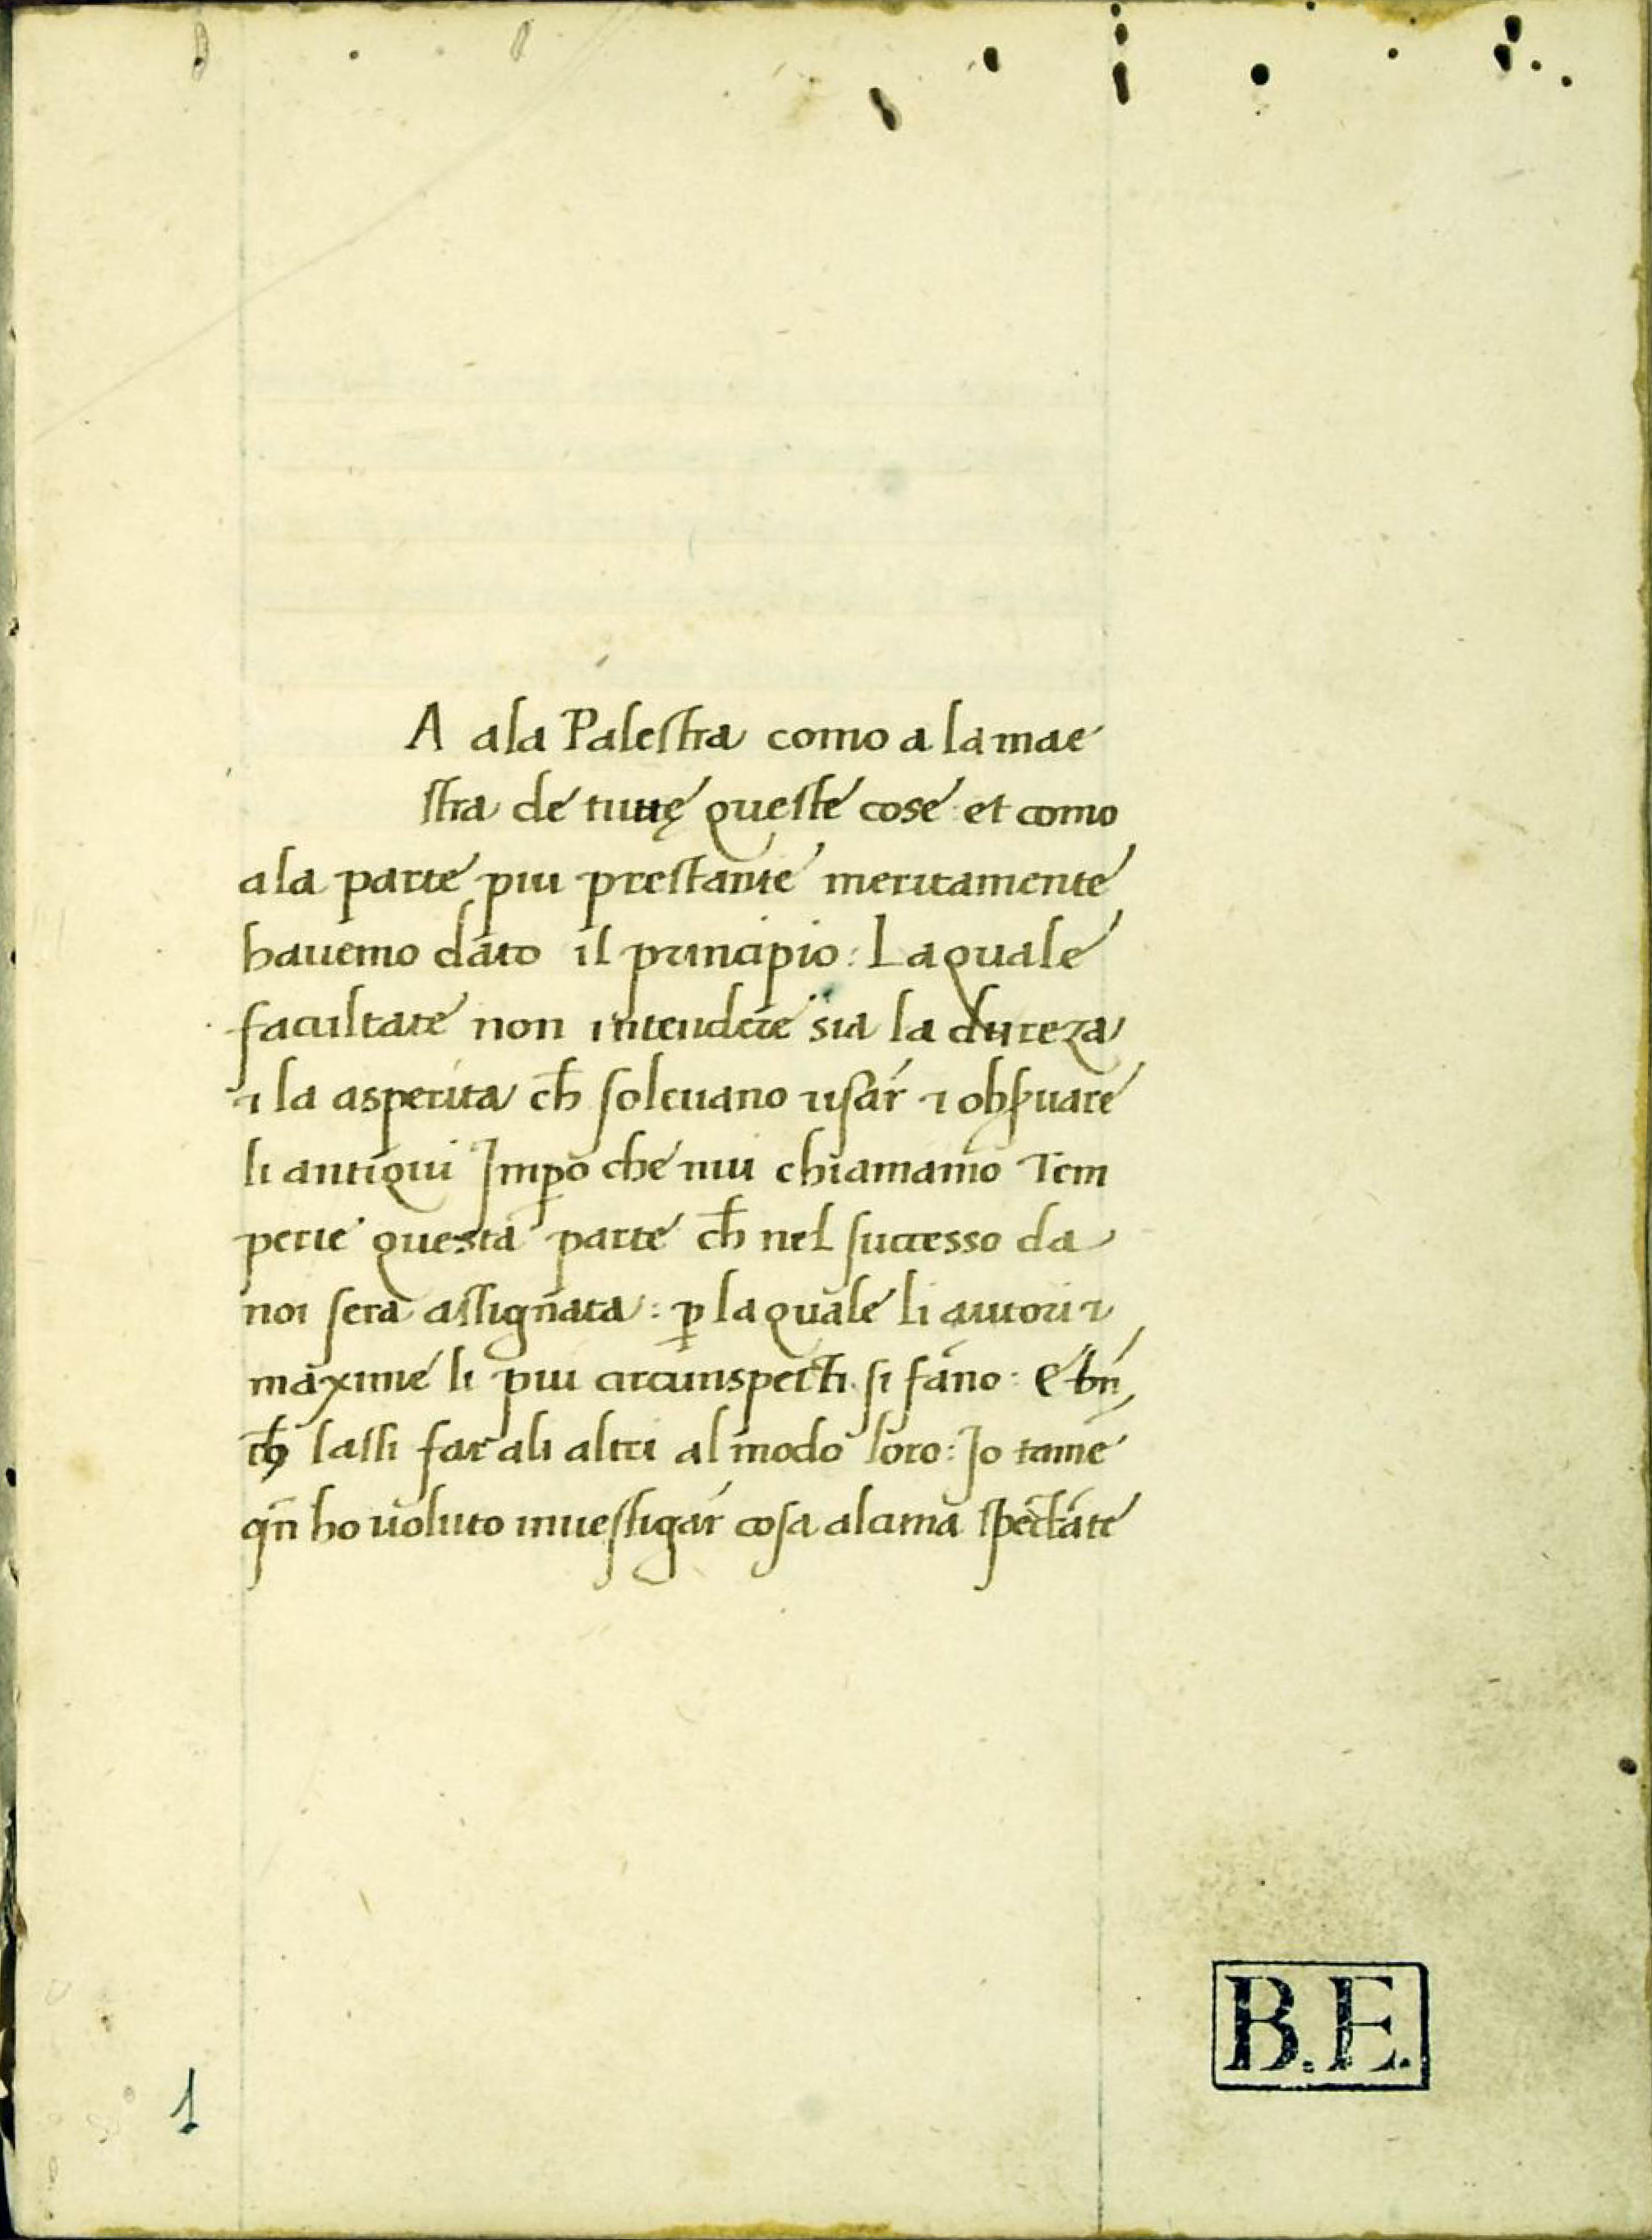 A ala Palestra como a la mae
stra de tuttę queste cose et como
ala parte piu prestante meritamente
havemo dato il principio : La quale
facultate non intendete sia la dureza
⁊ la asperita ch̄ solevano usar ⁊ obseruare
li antiqui Imꝑo che nui chiamamo Tem
perie questa parte ch̄ nel successo da
noi sera assignata : ꝑ la quale li autori ⁊
maxime li piu circunspecti si fāno : E bñ
ch̄ lassi far ali altri al modo loro : Jo tame
qñ ho uoluto inuestigar cosa alcuna spectāte
B.E.
1